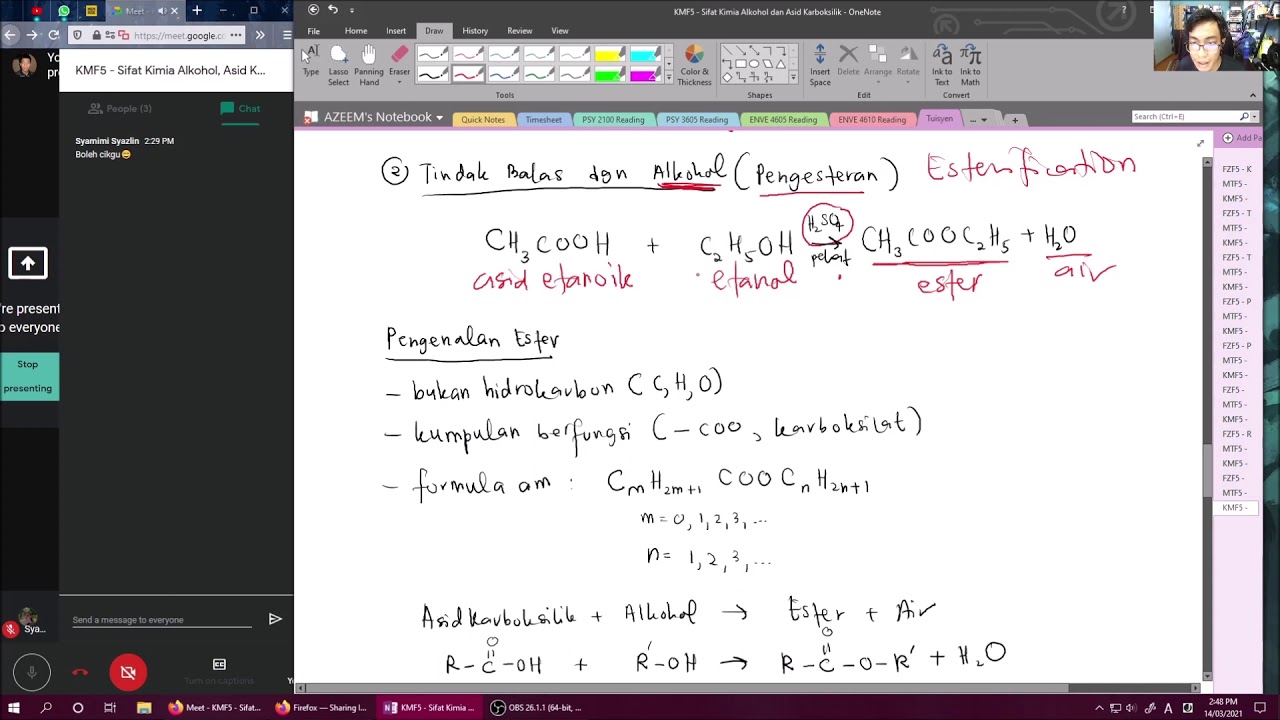 Meet -
https://meet.google.co
KMF5 - Sifat Kimia Alkohol, Asid K...
People (3)
Chat
Syamimi Syazlin 2:29 PM
Boleh cikgu😄
're presenti
o everyone
Stop
presenting
Sya...
Send a message to everyone
Turn on captions
KMF5 - Sifat Kimia Alkohol dan Asid Karboksilik - OneNote
File Home Insert Draw History Review View
Type
Lasso Select
Panning Hand
Eraser
Tools
Color & Thickness
Shapes
Insert Space
Delete
Arrange
Rotate
Edit
Ink to Text
Ink to Math
Convert
AZEEM's Notebook
Quick Notes Timesheet PSY 2100 Reading PSY 3605 Reading ENVE 4605 Reading ENVE 4610 Reading Tuisyen ...
Search (Ctrl+E)
Add Pa
FZF5 - K
MTF5 -
KMF5 -
FZF5 - T
MTF5 -
KMF5 -
FZF5 - T
MTF5 -
KMF5 -
FZF5 - P
MTF5 -
KMF5 -
FZF5 - P
MTF5 -
KMF5 -
FZF5 -
MTF5 -
KMF5 -
FZF5 - R
MTF5 -
KMF5 -
FZF5 -
MTF5 -
KMF5 -
② Tindak Balas dgn Alkohol (Pengesteran) Esterification
CH₃COOH + C₂H₅OH H₂SO₄ → pekat CH₃COOC₂H₅ + H₂O
asid etanoik etanol ester air
Pengenalan Ester
- bukan hidrokarbon (C,H,O)
- kumpulan berfungsi (-COO, karboksilat)
- formula am : CmH2m+1 COO CnH2n+1
m = 0, 1, 2, 3, ...
n = 1, 2, 3, ...
Asid karboksilik + Alkohol → Ester + Air
O O
R - C - OH + R' - OH → R - C - O - R' + H₂O
Meet - KMF5 - Sifat...
Firefox — Sharing I...
KMF5 - Sifat Kimia ...
OBS 26.1.1 (64-bit, ...
2:48 PM
14/03/2021